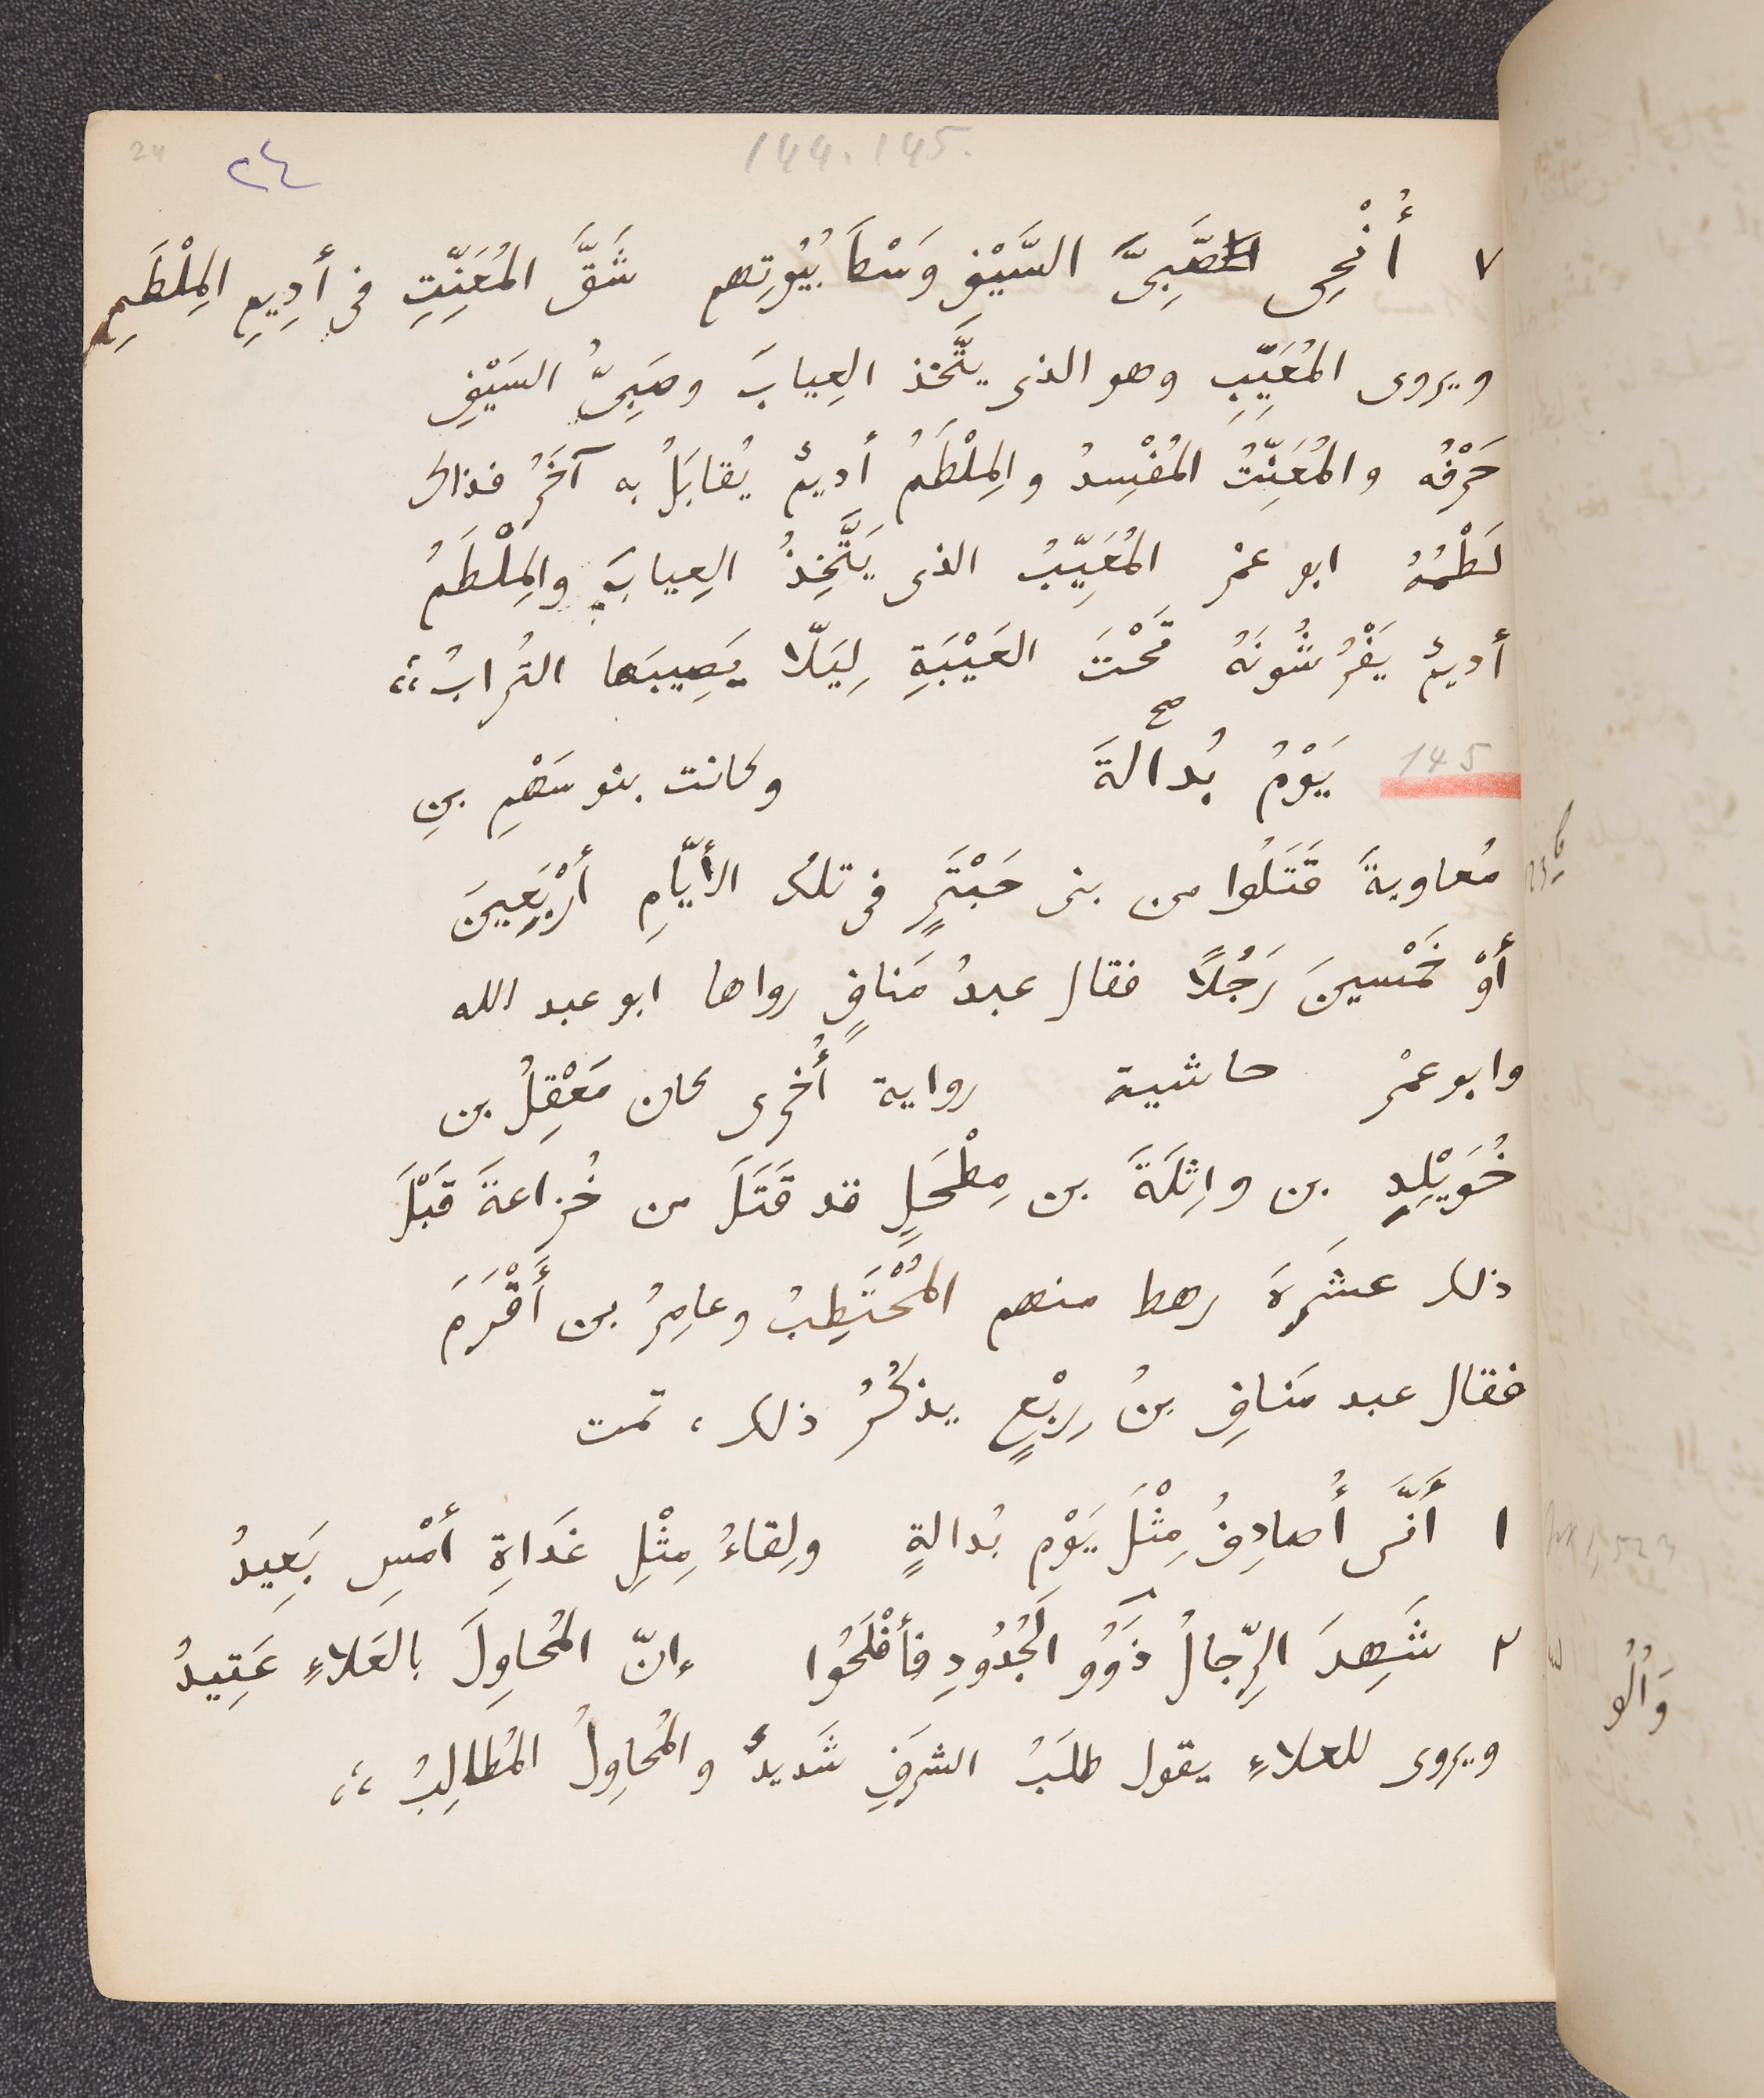 24 ٢٤ 144.145.
٧ أُنْحِى صَبِىَّ السَّيْفِ وَسْطَ بُيُوتِهم شَقَّ المُعَنِّتِ فى أَدِيمِ المِلْطَمِ
ويروى المُعَيِّبِ وهو الذى يتَّخذ العِيابَ وصَبِىُّ السَيْفِ
حَرْفُه والمُعَنِّتُ المُفْسِدُ والمِلْطَمُ أديمٌ يُقابَلُ به آخَرُ فذاك
لَطْمُهُ ابو عمْر المُعَيِّبُ الذى يَتَّخِذُ العِيابَ والمِلْطَمُ
أديمٌ يَفْرُشُونَهُ تَحْتَ العَيْبَةِ لِيَلّا يَصِيبَها التُرابُ،،
145 يَوْمُ بُدالَةَ صح وكانت بنو سَهْمِ بنِ
مُعاويةَ قَتَلُوا من بنى حَبْتَرٍ فى تلك الأَيّامِ أَرْبَعِينَ
أَوْ خَمْسينَ رَجُلًا فقال عبدُ مَنافٍ رواها ابو عبد الله
وابو عمْر حاشية رواية أُخرى كان مَعْقِلُ بن
خُوَيْلِدٍ بن واثِلَةَ بن مِطْحَلٍ قد قَتَلَ من خُزاعةَ قَبْلَ
ذلك عشَرةَ رهط منهم المُحْتَطِبُ وعامِرُ بن أَقْرَمَ
فقال عبد مَنافِ بنُ رِبْعٍ يذكُرُ ذلك، تمت
١ أَنَّى أُصادِفُ مِثْلَ يَوْمِ بُدالةٍ ولِقاءُ مِثْلِ غَداةِ أَمْسِ بَعِيدُ
٢ شَهِدَ الرِّجالُ ذَوُو الجُدُودِ فأَفْلَحُوا إنّ المُحاوِلَ بالعَلاءِ عَتِيدُ
وَالُو
ويروى للعلاءِ يقول طلَبُ الشرفِ شَديدٌ والمُحاوِلُ المُطالِبُ،،